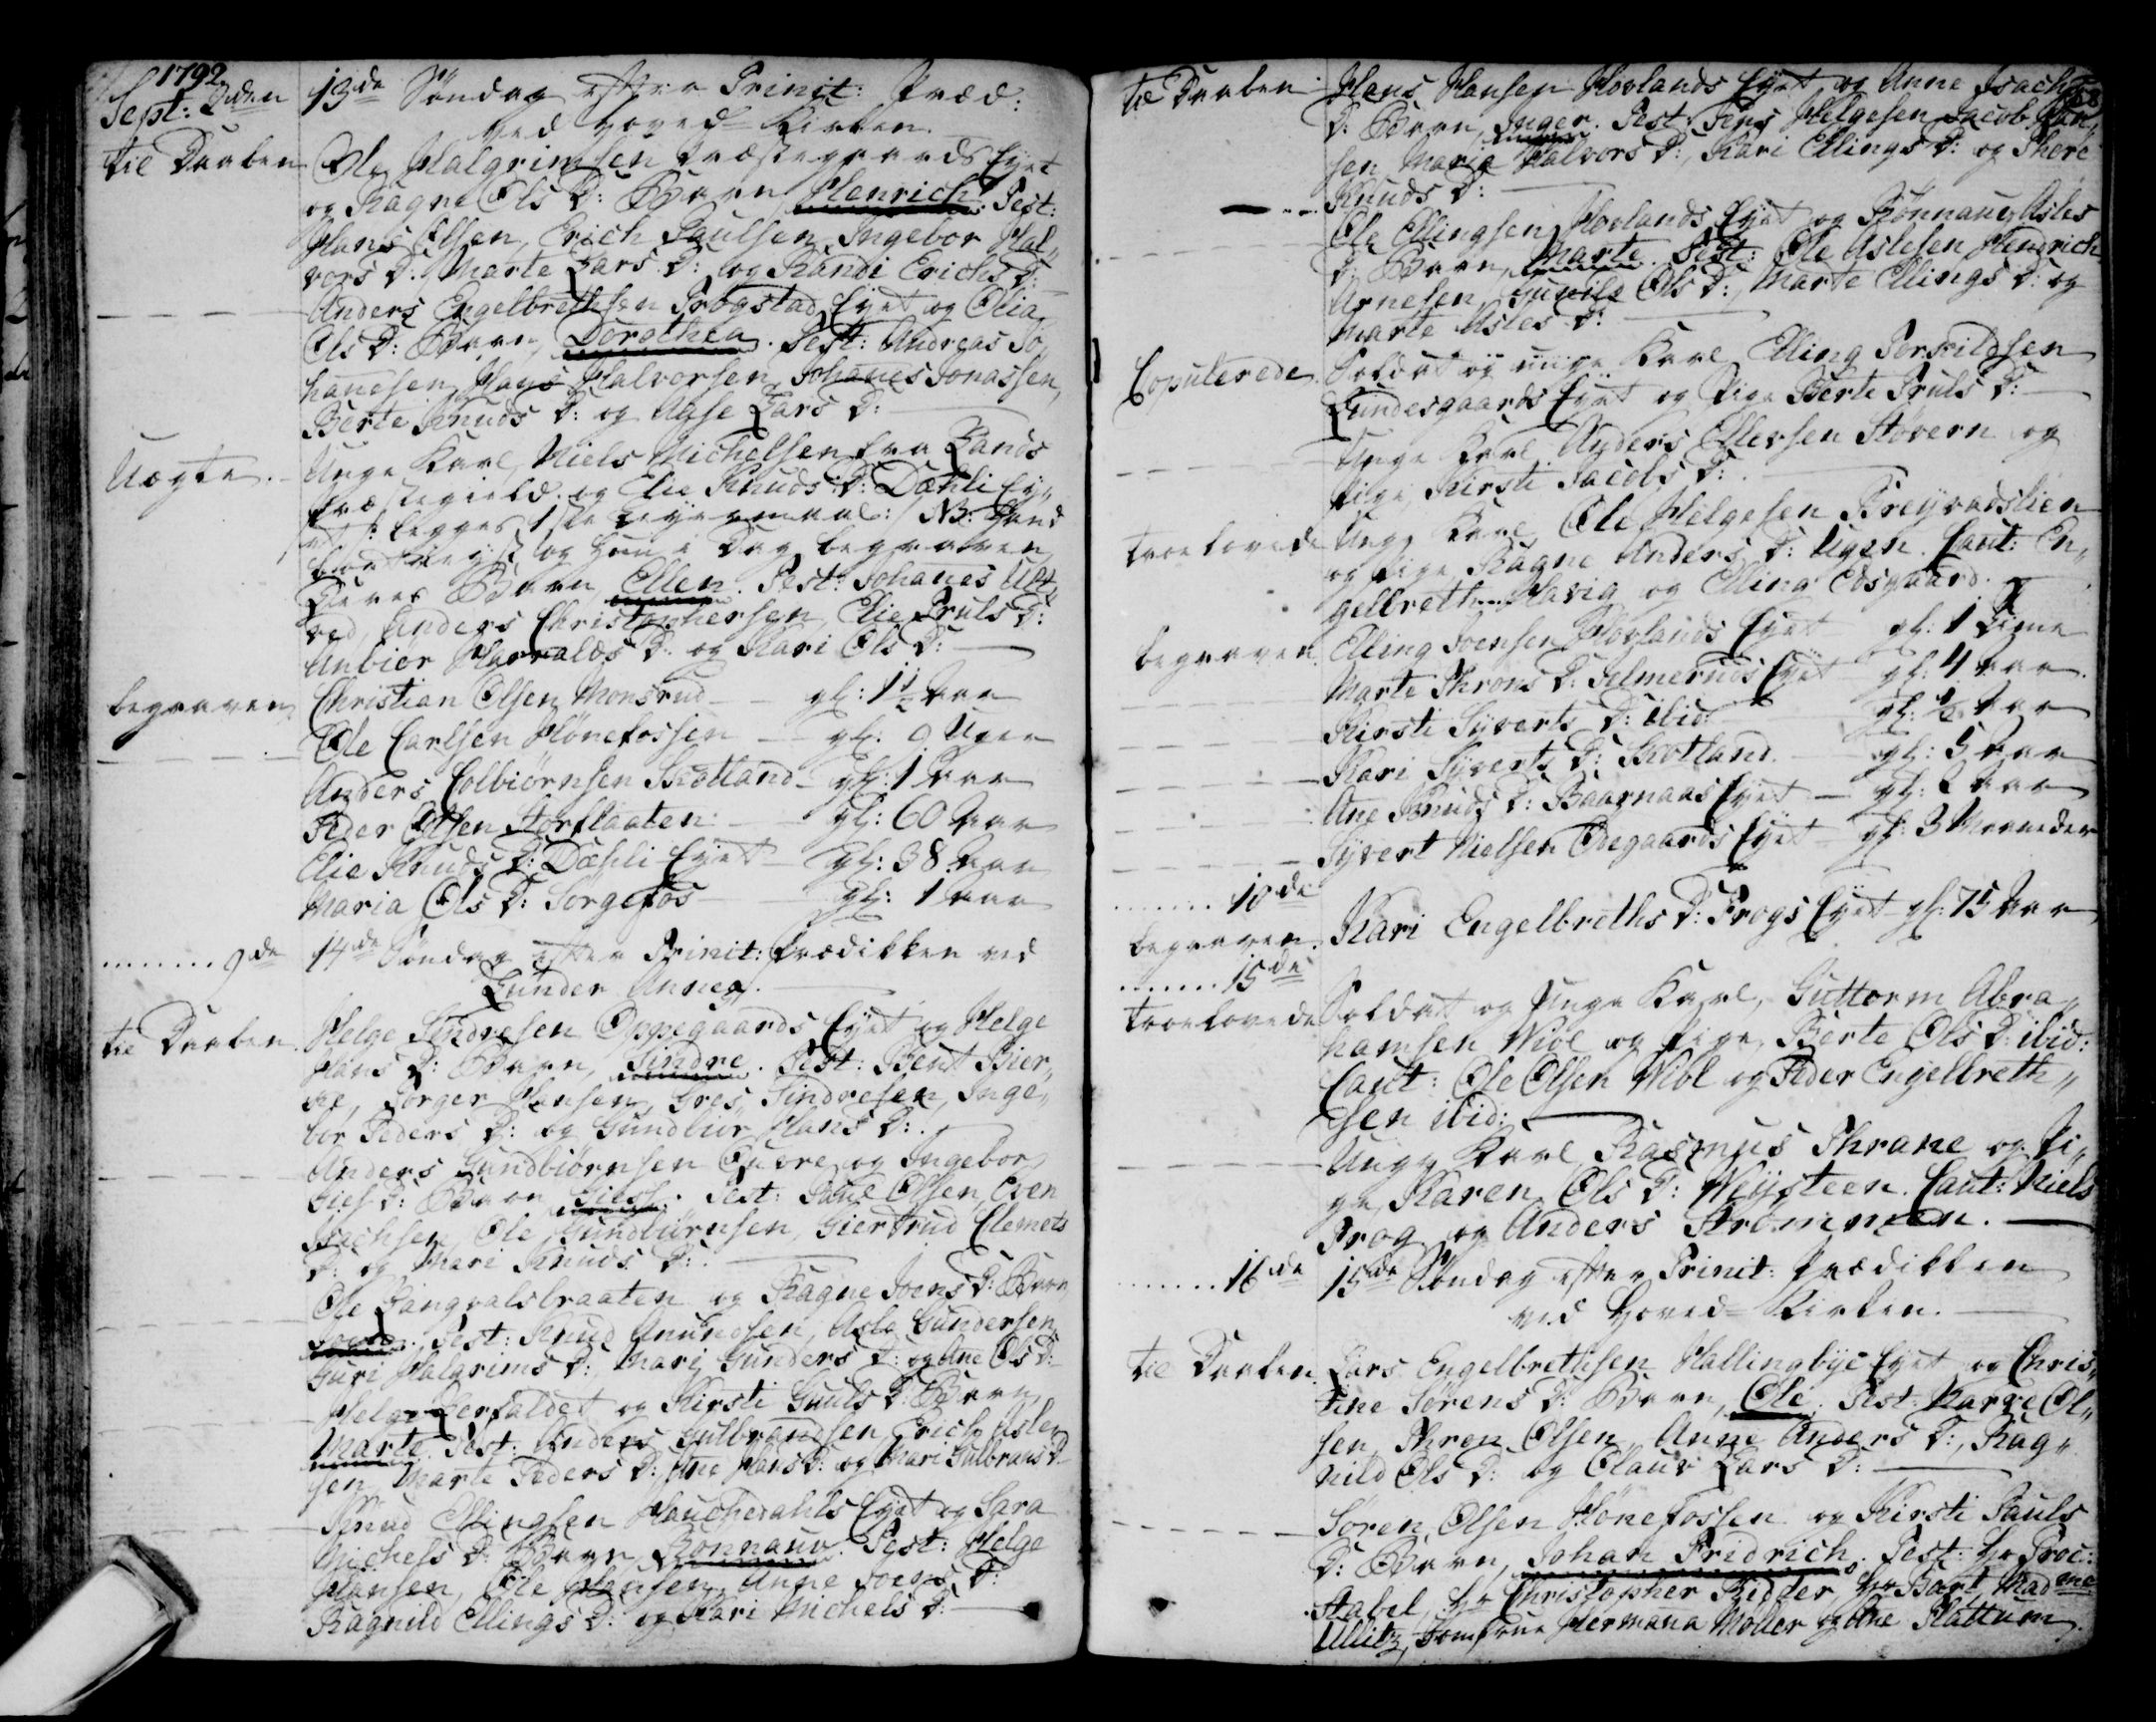 1792
Sept: 2den 13de Söndag efter Trinit: Præd:
ved Hoved-Kirken.
til Daaben Ole Halgrimsen Præstegaards Eyet
og Ragne Ols D: Barn Henrich. Test:
Hans Olsen, Erich Paulsen, Ingebor Hal„
vors D: Marte Lars D: og Randi Erichs D:
Anders Engelbrethsen Frogstad Eyet og Olia
Ols D: Barn, Dorothea. Test: Andreas Jo„
hanesen, Hans Halvorsen, Johanes Jonassen,
Berte Knuds D: og Aase Lars D:
Uægte. Unge Karl, Niels Michelsen fra Lands
Præstegield og Elie Knuds D: Dæhli Ey„
et /: begges 1ste Leyermaal :/ NB: Hand
bortreyst og hun i Dag begraven
Deres Barn Ellen. Test: Johanes Ult„
ved, Anders Christophersen, Elie Truls D:
Anbier Harralds D: og Kari Ols D:
begraven Christian Olsen Monsrud gl: 1 1/2 Aar
Ole Carlsen Hönefossen gl: 9 Uger
Anders Colbiörnsen Skotland gl: 1 Aar
Peder Olsen Storflaaten gl: 60 Aar
Elie Knuds D: Dæhli Eyet gl: 38 Aar
Maria Ols D: Sorgefos gl: 1 Aar
9de 14de Söndag efter Trinit: Prædikken ved
Lunder Annex.
til Daaben Helge Sindresen Oppegaards Eyet og Helge
Hans D: Barn, Sindre. Test: Bent Bier„
ke, Torger Hansen, Gres Sindresen, Inge„
bor Peders D: og Gundbior Hans D:
Anders Gundbiörnsen og Ingebor
D: Barn Test: Olsen, Even
Ole Gundbiörnsen, Giertrud Clemets
D: og Mari Knuds D:
Ole Rangvalsbraaten og Ragne Joens D: Barn
Test: Knud Amundsen, Asle Gundersen,
Guri Halgrims D: Mari Gunders D: og Ane Ols D:
Helge og Kirsti Guuls D: Barn
Marte. Test: Anders Gulbrandsen, Erich Asle„
sen, Marte Peders D: Ane Hans D: og Mari Gulbrans D
Knud Ellingsen Eyet og Sara
Michels D: Barn Ronnauv. Test: Helge
Hansen, Ole Hansen, Anne Joens D:
Ragnild Ellings D: og Kari Michels D:
til Daaben Hans Hansen Hovlands Eyet og Anne Isachs
D: Barn, Inger. Test: Jens Helgesen, Jacob Han„
sen, Maria Halvors D:, Kari Ellings D: og Thore
Knuds D:
Ole Ellingsen Hovlands Eyet og Rönnauv Asles
D: Barn, Marte. Test: Ole Aslesen, Hendrich
Arnesen, Gunild Ols D:, Marte Ellings D: og
Marte Asles D:
Copulerede Soldat og unge Karl Elling Torkildsen
Lundesgaards Eyet og Pige Berte Truls D:
Unge Karl Anders Ellevsen Stövern og
Pige Kirsti Jacobs D:
troelovede Unge Karl Ole Helgesen
og Pige Ragne Anders D: Caut: En„
gelbreth Havig og Elling Edsgaard.
begraven Elling Joensen Hovlands Eyet gl: 1 Time
Marte Throns D: Selmeruds Eyet gl: 4 Aar
Kirsti Syverts D: ibid: gl: 1/2 Aar
Kari Syverts D: Skotland gl: 5 Aar
Ane Knuds D: Baarnaas Eyet gl: 2 Aar
Syvert Nielsen Odegaards Eyet gl: 3 Maaneder
10de
begraven Kari Engelbreths D: Frogs Eyet gl: 75 Aar
15de
troelovede Soldat og Unge Karl, Guttorm Abra„
hamsen Wibl og Pige, Berte Ols D: ibid:
Caut: Ole Olsen Wibl og Peder Engelbreth„
sen ibid:
Unge Karl Rasmus Thrane og Pi„
ge Karen Ols D: Weysteen. Caut: Niels
Frog og Anders Strömmen.
16de 15de Söndag efter Trinit: Prædikken
ved Hoved-Kirken.
til Daaben Lars Engelbrethsen Hallingbye Eyet og Chris„
tine Sörens D: Barn, Ole. Test: Narve Ol„
sen, Thron Olsen, Anne Anders D:, Rag„
nild Ols D: og Olauv Lars D:
Sören Olsen Hönefossen og Kirsti Pauls
D: Barn, Johan Fridrich. Test: Hr Proc:
Stabel, Hr Christopher Ridder, Hr Bart, Madme
Ulitz, Jomfrue Hermana Moller og Ane Flattum